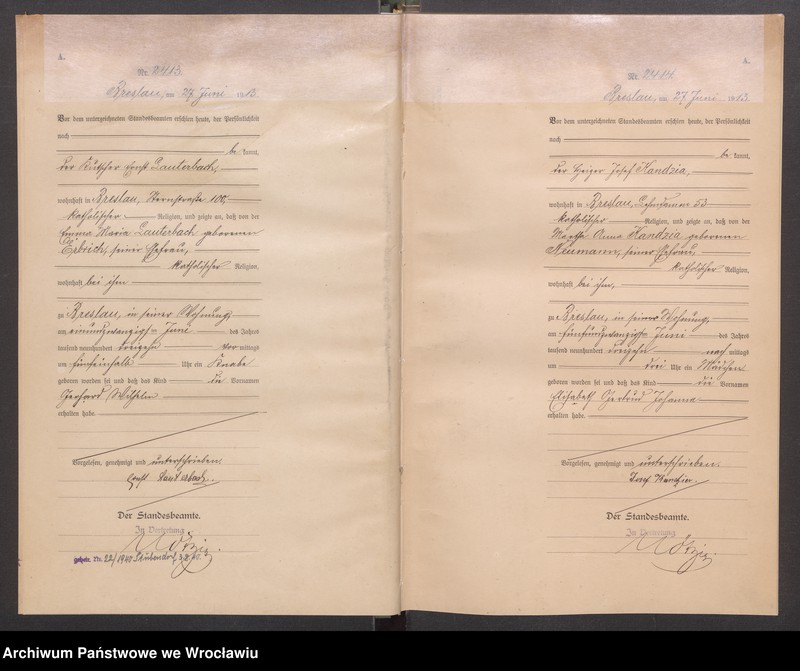 A.
Nr. 2413.
Breslau, am 27. Juni 1913.
Vor dem unterzeichneten Standesbeamten erschien heute, der Persönlichkeit
nach
be kannt,
der Kutscher Ernst Lauterbach,
wohnhaft in Breslau, Sternstraße 100,
katholischer Religion, und zeigte an, daß von der
Emma Maria Lauterbach geborenen
Erbrich, seiner Ehefrau,
katholischer Religion,
wohnhaft bei ihm
zu Breslau, in seiner Wohnung,
am einundzwanzigsten Juni des Jahres
tausend neunhundert dreizehn vormittags
um fünfeinhalb Uhr ein Knabe
geboren worden sei und daß das Kind die Vornamen
Gerhard Wilhelm
erhalten habe.
Vorgelesen, genehmigt und unterschrieben.
Ernst Lauterbach.
Der Standesbeamte.
In Vertretung
geheir. Nr. 22/1940 Stubendorf
A.
Nr. 2414.
Breslau, am 27. Juni 1913.
Vor dem unterzeichneten Standesbeamten erschien heute, der Persönlichkeit
nach
be kannt,
der Heizer Josef Kandzia,
wohnhaft in Breslau, Lehmdamm 53
katholischer Religion, und zeigte an, daß von der
Martha Anna Kandzia geborenen
Neumann, seiner Ehefrau,
katholischer Religion,
wohnhaft bei ihm,
zu Breslau, in seiner Wohnung,
am fünfundzwanzigsten Juni des Jahres
tausend neunhundert dreizehn nach mittags
um drei Uhr ein Mädchen
geboren worden sei und daß das Kind die Vornamen
Elisabeth Gertrud Johanna
erhalten habe.
Vorgelesen, genehmigt und unterschrieben.
Josef Kandzia.
Der Standesbeamte.
In Vertretung
Archiwum Państwowe we Wrocławiu